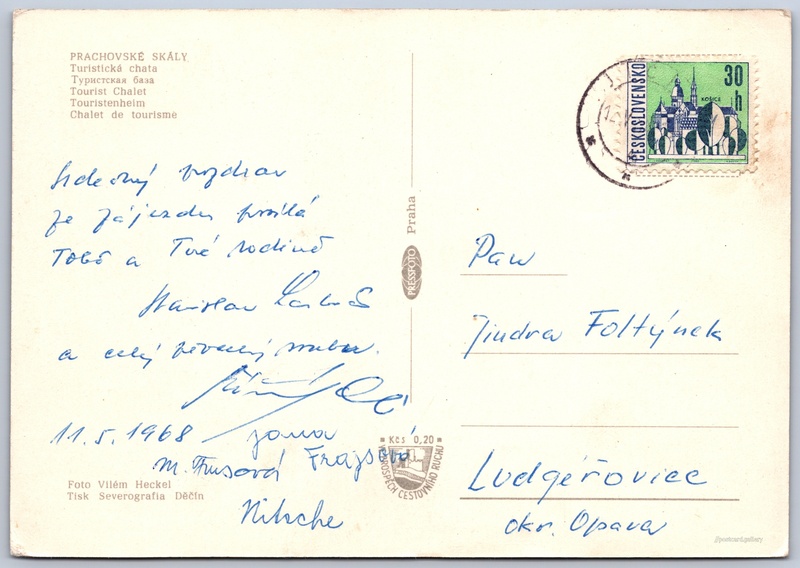 PRACHOVSKÉ SKÁLY
Turistická chata
Туристская база
Tourist Chalet
Touristenheim
Chalet de tourisme
Srdečný pozdrav
ze zájezdu posílá
Tobě a Tvé rodině
Stanislav
a celý pěvecký
11.5.1968
Jana
M. Frajsová
Nitsche
Foto Vilém Heckel
Tisk Severografia Děčín
Praha
PRESSFOTO
Kčs 0,20
VE PROSPĚCH CESTOVNÍHO RUCHU
ČESKOSLOVENSKO
30 h
KOŠICE
Pan
Jindra Foltýnek
Ludgeřovice
okr. Opava
//postcard.gallery